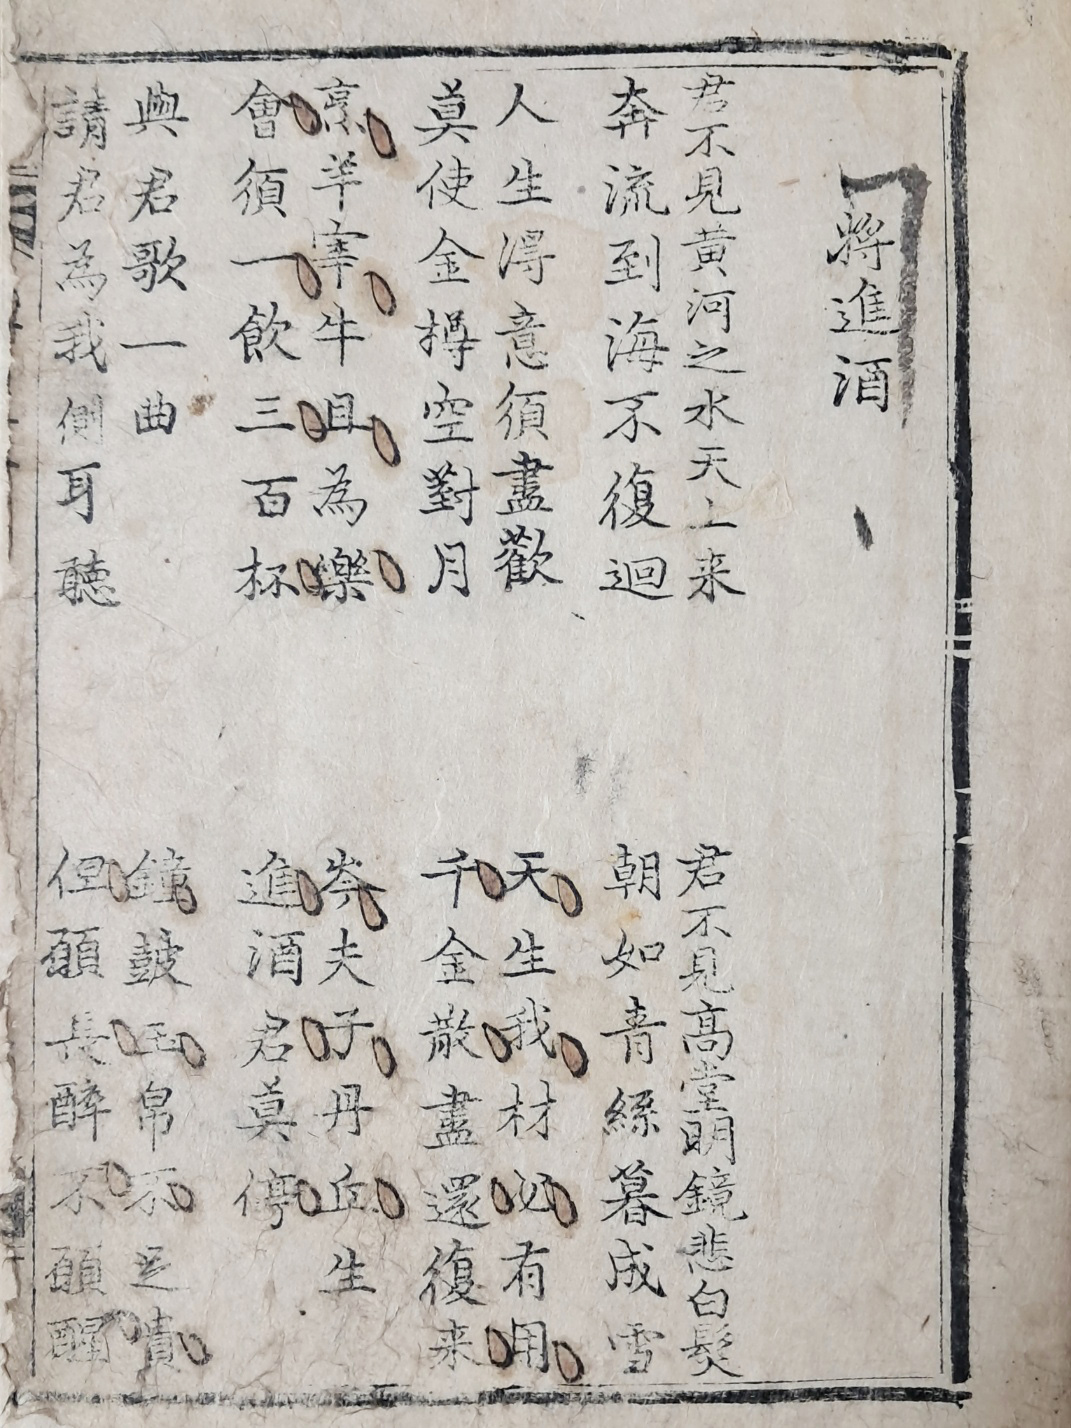 將進酒
君不見黄河之水天上来
奔流到海不復迴
君不見高堂明鏡悲白髮
朝如青絲暮成雪
人生淂意須盡歡
莫使金撙空對月
天生我材必有用
千金散盡還復来
烹羊宰牛且為樂
會須一飲三百杯
岑夫子丹丘生
進酒君莫停
與君歌一曲
請君為我側耳聽
鐘皷玉帛不足貴
但願長醉不願醒